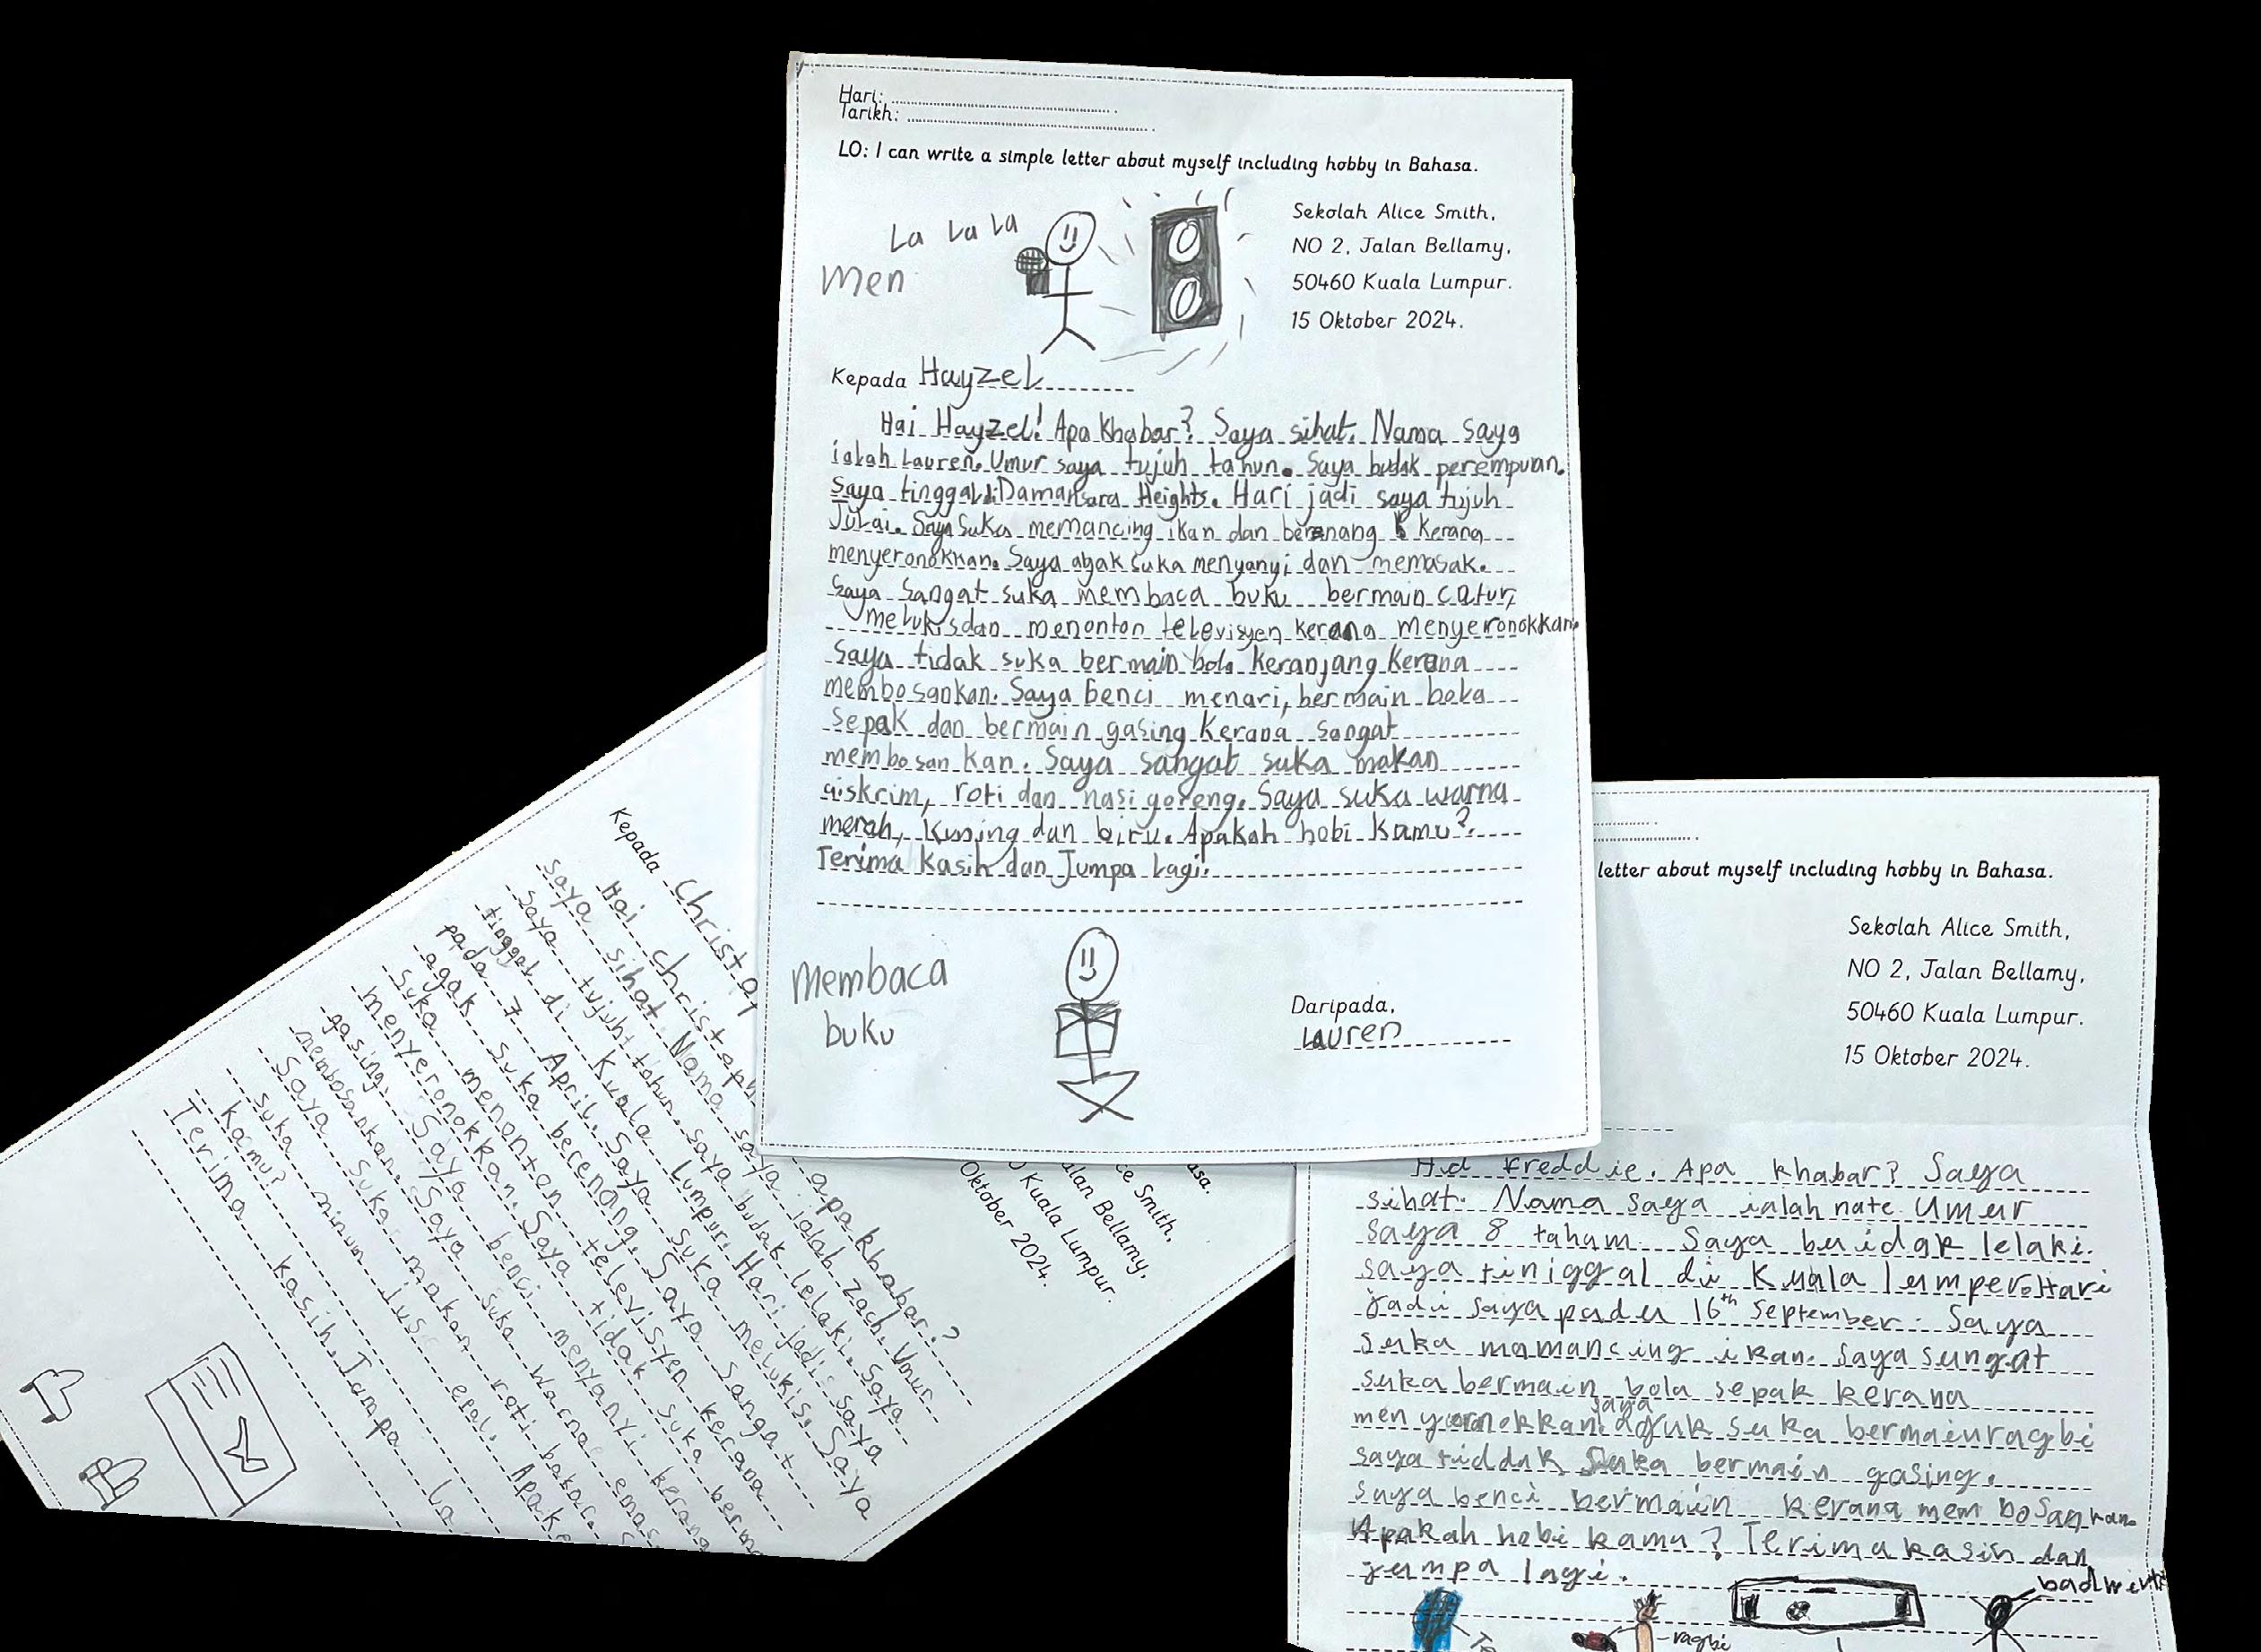 Hari:
Tarikh:
LO: I can write a simple letter about myself including hobby in Bahasa.
La La La
Men
Sekolah Alice Smith,
NO 2, Jalan Bellamy,
50460 Kuala Lumpur.
15 Oktober 2024.
Kepada Hayzel
Hai Hayzel! Apa khabar? Saya sihat. Nama saya
ialah Lauren. Umur saya tujuh tahun. Saya budak perempuan.
Saya tinggal di Damansara Heights. Hari jadi saya tujuh
Julai. Saya suka memancing ikan dan berenang kerana
menyeronokkan. Saya agak suka menyanyi dan memasak.
Saya sangat suka membaca buku bermain catur,
melukis dan menonton televisyen kerana menyeronokkan.
Saya tidak suka bermain bola keranjang kerana
membosankan. Saya benci menari, bermain bola
sepak dan bermain gasing kerana sangat
membosankan. Saya sangat suka makan
aiskrim, roti dan nasi goreng. Saya suka warna
merah, kuning dan biru. Apakah hobi kamu?
Terima kasih dan Jumpa lagi.
membaca
buku
Daripada,
Lauren
Kepada Christop
Hai Christoph apa khabar?
Saya sihat. Nama saya ialah Zach. Umur
saya tujuh tahun. saya budak lelaki. Saya
tinggal di Kuala Lumpur. Hari jadi saya
pada 7 April. Saya suka melukis. Saya
agak suka berenang. Saya sangat
suka menonton televisyen kerana
menyeronokkan. Saya tidak suka berma
gasing. Saya benci menyanyi kerana
membosankan. Saya suka warna emas.
Saya suka makan roti bakar.
suka minum jus epal. Apaka
kamu?
Terima kasih. Jampa la
asa.
ce Smith,
alan Bellamy,
0 Kuala Lumpur.
Oktober 2024.
letter about myself including hobby in Bahasa.
Sekolah Alice Smith,
NO 2, Jalan Bellamy,
50460 Kuala Lumpur.
15 Oktober 2024.
freddie. Apa khabar? Saya
sihat. Nama saya ialah nate Umur
saya 8 taham. Saya buidak lelaki.
saya tiniggal di Kuala lumper. Hari
jadi saya pada 16th September. Saya
suka mamancing ikan. saya sungat
suka bermain bola sepak kerana
saya
suka bermain ragbi
saya tiddak suka bermain gasing.
saya benci bermain kerana membosankan.
Apakah hobi kamu? Terima kasih dan
jumpa lagi.
ragbi